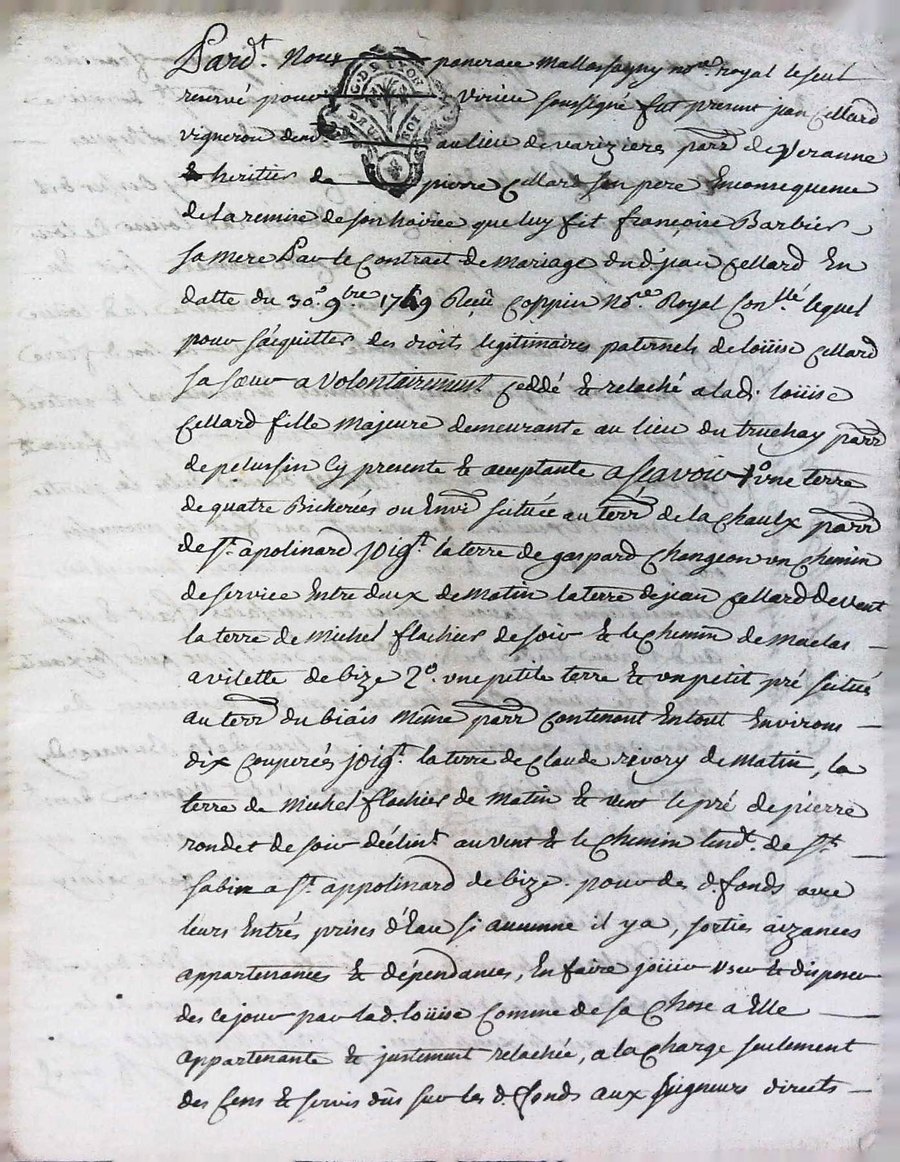 Pard.t Nous pancrace Mallassagny no.re royal le seul
reservé pour Virieu soussigné fut present jean Cellard
vigneron dem.t au lieu de varizieres parr de Veranne
heritier de pierre Cellard son pere En consequence
de la remise de son hoirie que luy fit françoise Barbier
sa mere Par le Contract de mariage dud. jean Cellard En
datte du 30.e 9.bre 1769 Reçu Coppin No.re Royal Con.llé lequel
pour s'acquitter des droits legitimaires paternels de Loüise Cellard
sa soeur a volontairement Ceddé & relaché a lad. Loüise
Cellard fille Majeure demeurante au lieu du truchay parr
de pelussin Cy presente & acceptante a Scavoir 1.o une terre
de quatre Bicherées ou Envir située au terr de la Chaulx parr
de S.t apolinard joig.t la terre de gaspard Changeon un Chemin
de service Entre deux de matin la terre de jean Cellard de vent
la terre de Michel flachier de soir & le Chemin de Maclas
a vilette de bize 2.o une petite terre & un petit pré situés
au terr du biais Même parr Contenant En tout Environ
dix Couperées joig.t la terre de Claude revory de Matin, la
terre de Michel flachier de Matin & vent le pré de pierre
rondet de soir déclin.t au vent & le Chemin tend.t de S.t
sabin a S.t appolinard de bize. pour des d. fonds avec
leurs Entrés prises d'Eau si aucunne il y a, sorties aizances
appartenances & dépendances, En faire joüir user & disposer
des ce jour par lad. Loüise Comme de sa Chose a Elle
appartenante & justement relachée, a la Charge seulement
des Cens & servis dûs sur les d. fonds aux Seigneurs directs
G. DE LYON